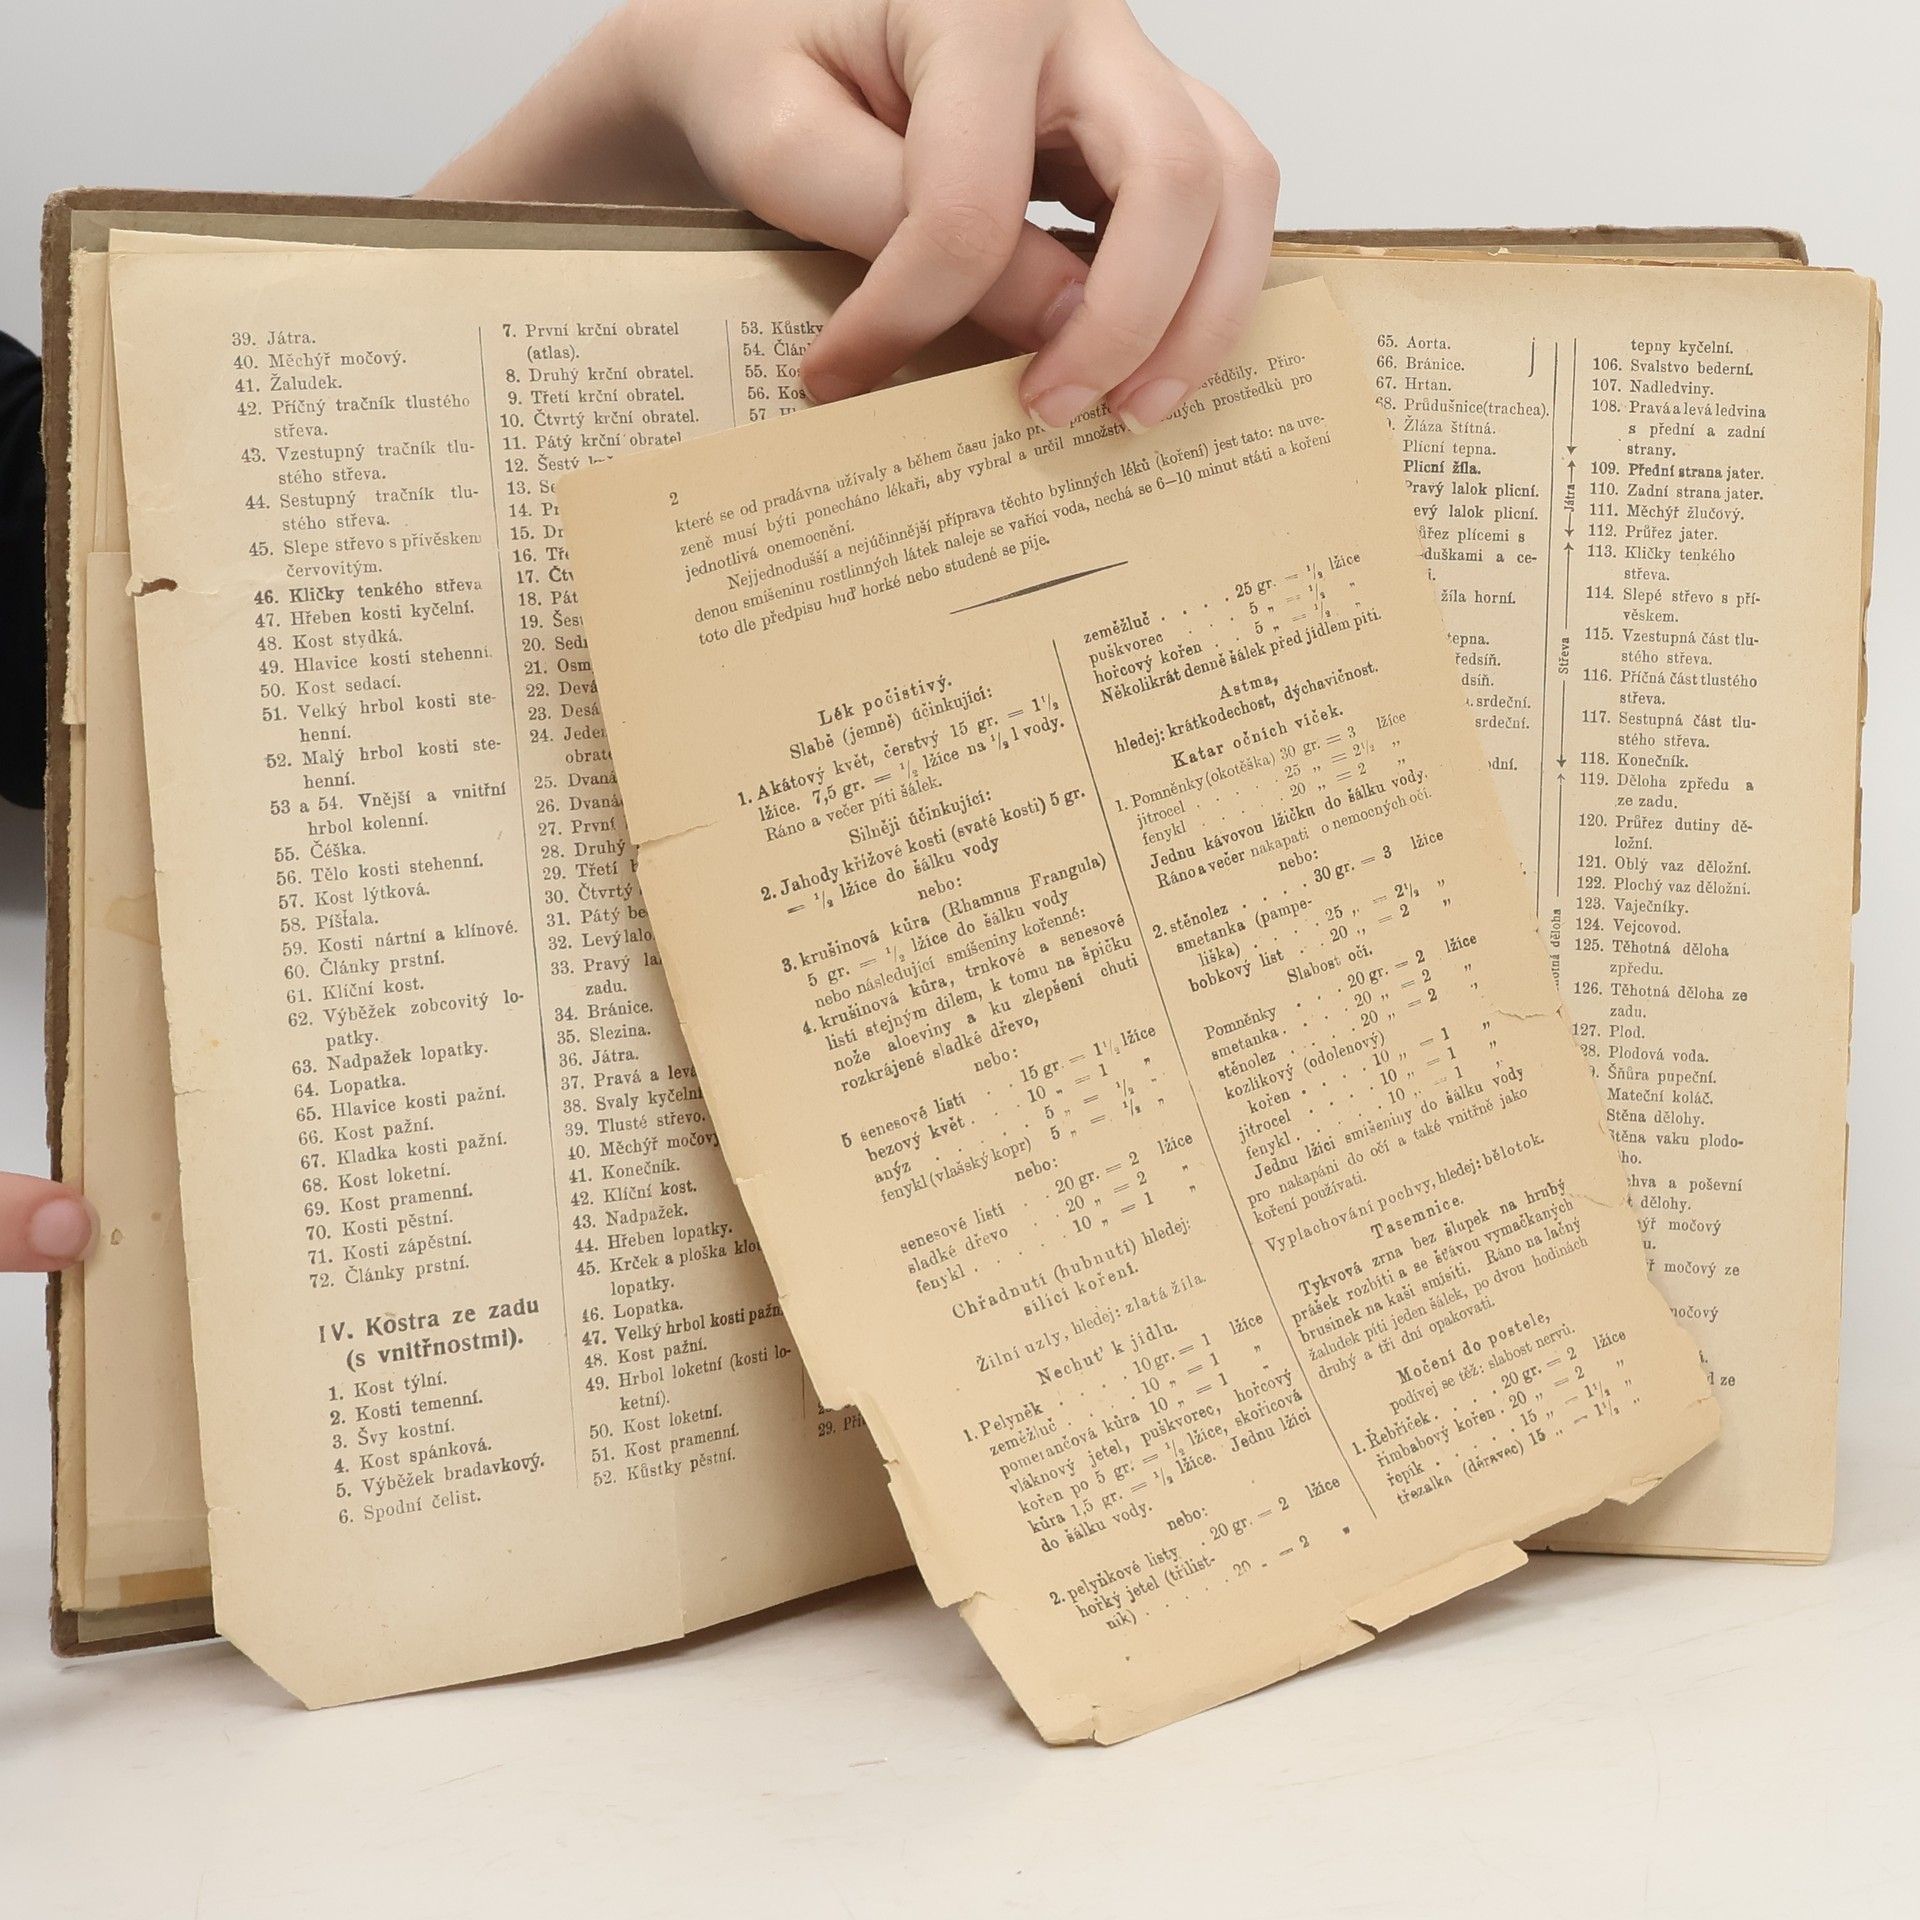 39. Játra.
40. Měchýř močový.
41. Žaludek.
42. Příčný tračník tlustého
střeva.
43. Vzestupný tračník tlu-
stého střeva.
44. Sestupný tračník tlu-
stého střeva.
45. Slepe střevo s přívěskem
červovitým.
46. Kličky tenkého střeva
47. Hřeben kosti kyčelní.
48. Kost stydká.
49. Hlavice kosti stehenní.
50. Kost sedací.
51. Velký hrbol kosti ste-
henní.
52. Malý hrbol kosti ste-
henní.
53 a 54. Vnější a vnitřní
hrbol kolenní.
55. Čéška.
56. Tělo kosti stehenní.
57. Kost lýtková.
58. Píšťala.
59. Kosti nártní a klínové.
60. Články prstní.
61. Klíční kost.
62. Výběžek zobcovitý lo-
patky.
63. Nadpažek lopatky.
64. Lopatka.
65. Hlavice kosti pažní.
66. Kost pažní.
67. Kladka kosti pažní.
68. Kost loketní.
69. Kost pramenní.
70. Kosti pěstní.
71. Kosti zápěstní.
72. Články prstní.
IV. Kostra ze zadu
(s vnitřnostmi).
1. Kost týlní.
2. Kosti temenní.
3. Švy kostní.
4. Kost spánková.
5. Výběžek bradavkový.
6. Spodní čelist.
7. První krční obratel
(atlas).
8. Druhý krční obratel.
9. Třetí krční obratel.
10. Čtvrtý krční obratel.
11. Pátý krční obratel
12. Šestý
13.
14.
15.
16.
17.
18. Pát
19. Šes
20. Sed
21. Osm
22. Devá
23. Desá
24. Jeden
obrate
25. Dvaná
26. Dvaná
27. První
28. Druhý
29. Třetí
30. Čtvrtý
31. Pátý be
32. Levý lalo
33. Pravý la
zadu.
34. Bránice.
35. Slezina.
36. Játra.
37. Pravá a levá
38. Svaly kyčelní
39. Tlusté střevo.
40. Měchýř močový
41. Konečník.
42. Klíční kost.
43. Nadpažek.
44. Hřeben lopatky.
45. Krček a ploška klou
lopatky.
46. Lopatka.
47. Velký hrbol kosti pažn
48. Kost pažní.
49. Hrbol loketní (kosti lo-
ketní).
50. Kost loketní.
51. Kost pramenní.
52. Kůstky pěstní.
53. Kůstky
54. Člán
55. Kos
56. Kos
57
29. Při
2
které se od pradávna užívaly a během času jako svědčily. Přiro-
zeně musí býti ponecháno lékaři, aby vybral a určil množství prostředků pro
jednotlivá onemocnění.
Nejjednodušší a nejúčinnější příprava těchto bylinných léků (koření) jest tato: na uve-
denou smíšeninu rostlinných látek naleje se vařící voda, nechá se 6—10 minut státi a koření
toto dle předpisu buď horké nebo studené se pije.
Lék počistivý.
Slabě (jemně) účinkující:
1. Akátový květ, čerstvý 15 gr. = 1 1/2
lžíce. 7,5 gr. = 1/2 lžíce na 1/2 l vody.
Ráno a večer píti šálek.
Silněji účinkující:
2. Jahody křížové kosti (svaté kosti) 5 gr.
= 1/2 lžíce do šálku vody
nebo:
3. krušinová kůra (Rhamnus Frangula)
5 gr. = 1/2 lžíce do šálku vody
nebo následující smíšeniny kořenné:
4. krušinová kůra, trnkové a senesové
listí stejným dílem, k tomu na špičku
nože aloeviny a ku zlepšení chuti
rozkrájené sladké dřevo,
nebo:
5 senesové listí . 15 gr. = 1 1/2 lžíce
bezový květ . . 10 „ = 1 „
anýz . . . . 5 „ = 1/2 „
fenykl (vlašský kopr) 5 „ = 1/2 „
nebo:
senesové listí . 20 gr. = 2 lžíce
sladké dřevo . . 20 „ = 2 „
fenykl . . . . 10 „ = 1 „
Chřadnutí (hubnutí) hledej:
sílící koření.
Žilní uzly, hledej: zlatá žíla.
Nechuť k jídlu.
1. Pelyněk . . . . 10 gr. = 1 lžíce
zeměžluč . . . . 10 „ = 1 „
pomerančová kůra 10 „ = 1 „
vláknový jetel, puškvorec, hořcový
kořen po 5 gr. = 1/2 lžíce, skořicová
kůra 1,5 gr. = 1/2 lžíce. Jednu lžíci
do šálku vody.
nebo:
2. pelyňkové listy . 20 gr. = 2 lžíce
hořký jetel (třílist-
ník) . . . . 20 „ = 2 „
zeměžluč . . . . 25 gr. = 1/2 lžíce
puškvorec . . . 5 „ = 1/2 „
hořcový kořen . . 5 „ = 1/2 „
Několikrát denně šálek před jídlem píti.
Astma,
hledej: krátkodechost, dýchavičnost.
Katar očních víček.
1. Pomněnky (okotěška) 30 gr. = 3 lžíce
jitrocel . . . . . 25 „ = 2 1/2 „
fenykl . . . . . 20 „ = 2 „
Jednu kávovou lžičku do šálku vody.
Ráno a večer nakapati o nemocných očí.
nebo:
2. stěnolez . . . . 30 gr. = 3 lžíce
smetanka (pampe-
liška) . . . . 25 „ = 2 1/2 „
bobkový list . . 20 „ = 2 „
Slabost očí.
Pomněnky . . . 20 gr. = 2 lžíce
smetanka . . . . 20 „ = 2 „
stěnolez . . . . 20 „ = 2 „
kozlíkový (odolenový)
kořen . . . . 10 „ = 1 „
jitrocel . . . . 10 „ = 1 „
fenykl . . . . . 10 „ = 1 „
Jednu lžíci smíšeniny do šálku vody
pro nakapáni do očí a také vnitřně jako
koření používati.
Vyplachování pochvy, hledej: bělotok.
Tasemnice.
Tykvová zrna bez šlupek na hrubý
prášek rozbíti a se šťávou vymačkaných
brusinek na kaši smísiti. Ráno na lačný
žaludek píti jeden šálek, po dvou hodinách
druhý a tři dní opakovati.
Močení do postele,
podívej se též: slabost nervů.
1. Řebříček . . . . 20 gr. = 2 lžíce
římbabový kořen . 20 „ = 2 „
řepík . . . . . 15 „ = 1 1/2 „
třezalka (děravec) 15 „ = 1 1/2 „
65. Aorta.
66. Bránice.
67. Hrtan.
68. Průdušnice (trachea).
Žláza štítná.
Plicní tepna.
Plicní žíla.
Pravý lalok plicní.
evý lalok plicní.
ůřez plícemi s
duškami a ce-
žíla horní.
tepna.
ředsíň.
dsíň.
srdeční.
srdeční.
odní.
Játra
Střeva
děloha
tepny kyčelní.
106. Svalstvo bederní.
107. Nadledviny.
108. Pravá a levá ledvina
s přední a zadní
strany.
109. Přední strana jater.
110. Zadní strana jater.
111. Měchýř žlučový.
112. Průřez jater.
113. Kličky tenkého
střeva.
114. Slepé střevo s pří-
věskem.
115. Vzestupná část tlu-
stého střeva.
116. Příčná část tlustého
střeva.
117. Sestupná část tlu-
stého střeva.
118. Konečník.
119. Děloha zpředu a
ze zadu.
120. Průřez dutiny dě-
ložní.
121. Oblý vaz děložní.
122. Plochý vaz děložní.
123. Vaječníky.
124. Vejcovod.
125. Těhotná děloha
zpředu.
126. Těhotná děloha ze
zadu.
127. Plod.
128. Plodová voda.
Šňůra pupeční.
Mateční koláč.
Stěna dělohy.
Stěna vaku plodo-
ého.
chva a poševní
dělohy.
ýř močový
u.
ř močový ze
močový
ze